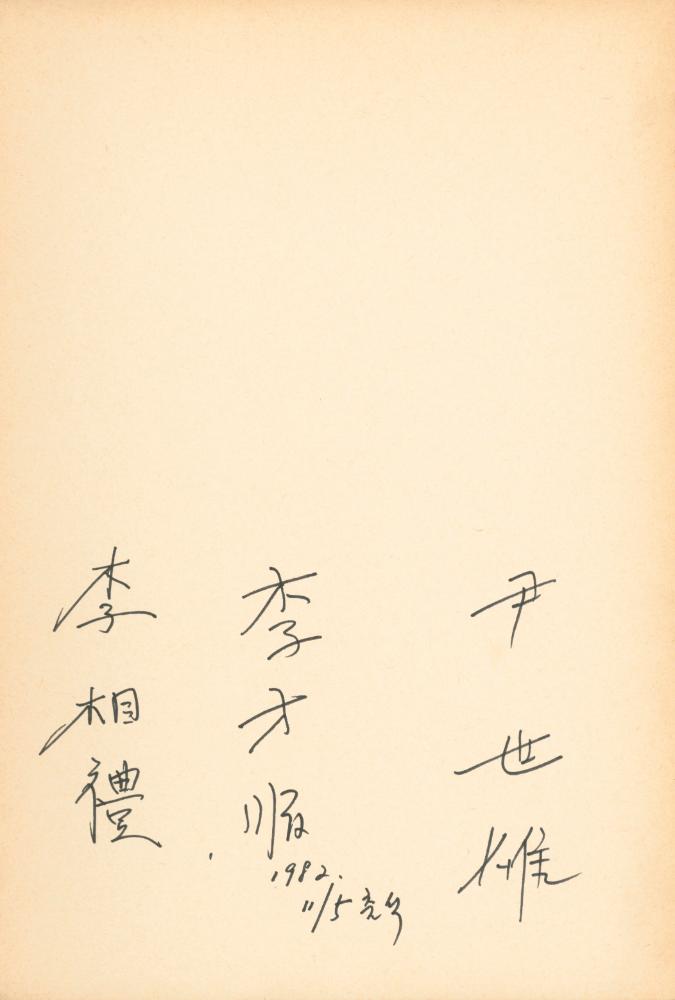 尹世雄
李才順
1982.
11/5
李相禮